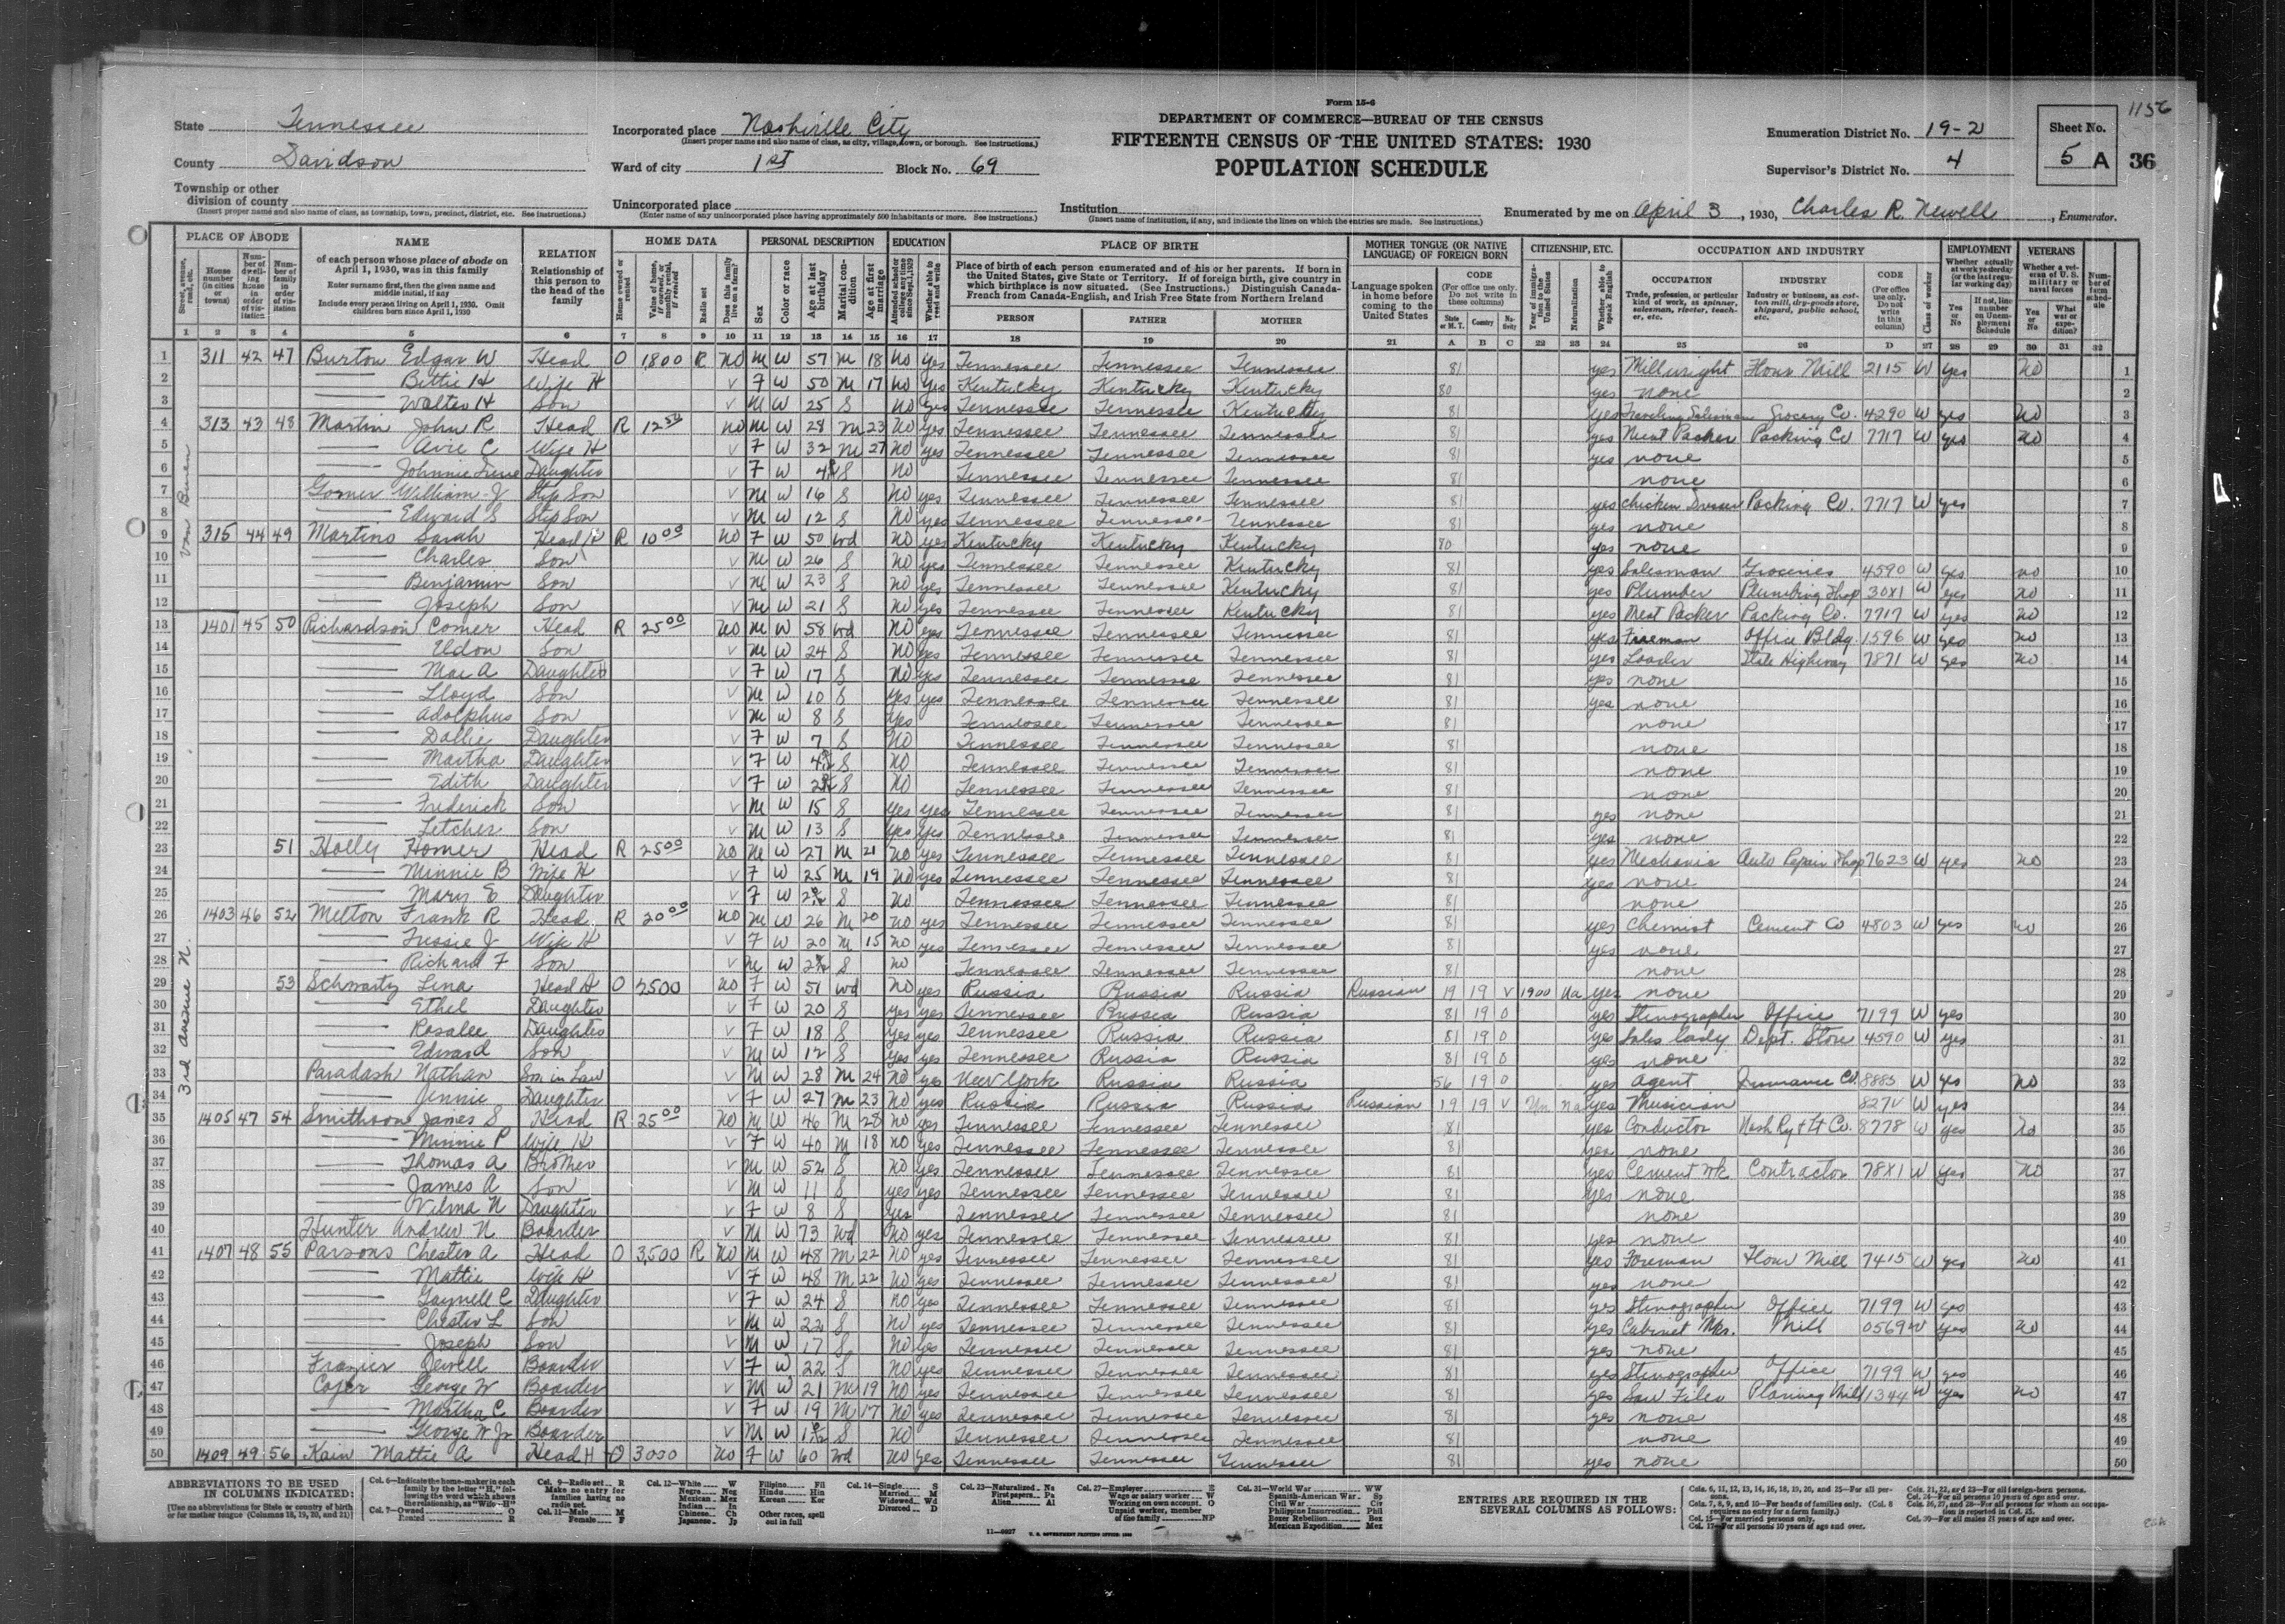 1156
Form 15-6
State Tennessee
County Davidson
Township or other division of county
(Insert proper name and also name of class, as township, town, precinct, district, etc. See instructions.)
Incorporated place Nashville City
(Insert proper name and also name of class, as city, village, town, or borough. See instructions.)
Ward of city 1st Block No. 69
Unincorporated place
(Enter name of any unincorporated place having approximately 500 inhabitants or more. See instructions.)
DEPARTMENT OF COMMERCE—BUREAU OF THE CENSUS
FIFTEENTH CENSUS OF THE UNITED STATES: 1930
POPULATION SCHEDULE
Institution
(Insert name of institution, if any, and indicate the lines on which the entries are made. See instructions.)
Enumeration District No. 19-2
Supervisor's District No. 4
Sheet No. 5 A 36
Enumerated by me on April 3, 1930, Charles R. Newell, Enumerator.
PLACE OF ABODE NAME RELATION HOME DATA PERSONAL DESCRIPTION EDUCATION PLACE OF BIRTH MOTHER TONGUE (OR NATIVE LANGUAGE) OF FOREIGN BORN CITIZENSHIP, ETC. OCCUPATION AND INDUSTRY EMPLOYMENT VETERANS
of each person whose place of abode on April 1, 1930, was in this family
Enter surname first, then the given name and middle initial, if any
Include every person living on April 1, 1930. Omit children born since April 1, 1930
Relationship of this person to the head of the family
Place of birth of each person enumerated and of his or her parents. If born in the United States, give State or Territory. If of foreign birth, give country in which birthplace is now situated. (See Instructions.) Distinguish Canada-French from Canada-English, and Irish Free State from Northern Ireland
PERSON FATHER MOTHER
Language spoken in home before coming to the United States
CODE (For office use only. Do not write in these columns)
OCCUPATION INDUSTRY CODE
Van Buren
3rd Avenue N.
1 311 42 47 Burton Edgar W Head O 1,800 R No M W 57 M 18 No Yes Tennessee Tennessee Tennessee 81 yes Millwright Flour Mill 2115 W yes No 1
2 Bettie H Wife H F W 50 M 17 No Yes Kentucky Kentucky Kentucky 80 yes none 2
3 Walter H Son M W 25 S No Yes Tennessee Tennessee Kentucky 81 yes Traveling Salesman Grocery Co. 4290 W yes No 3
4 313 43 48 Martin John R Head R 12 50 No M W 28 M 23 No Yes Tennessee Tennessee Tennessee 81 yes Meat Packer Packing Co 7717 W yes No 4
5 Avie C Wife H F W 32 M 27 No yes Tennessee Tennessee Tennessee 81 yes none 5
6 Johnnie Irene Daughter F W S No Tennessee Tennessee Tennessee 81 none 6
7 William J Step Son M W 16 S No yes Tennessee Tennessee Tennessee 81 yes Chicken Dresser Packing Co. 7717 W yes 7
8 Edward S Step Son M W 12 S No yes Tennessee Tennessee Tennessee 81 yes none 8
9 315 44 49 Martins Sarah Head H R 10 00 No F W 50 Wd No yes Kentucky Kentucky Kentucky 80 yes none 9
10 Charles Son M W 26 S No yes Tennessee Tennessee Kentucky 81 yes Salesman Groceries 4590 W yes no 10
11 Benjamin Son M W 23 S No yes Tennessee Tennessee Kentucky 81 yes Plumber Plumbing Shop 30X1 W yes No 11
12 Joseph Son M W 21 S No yes Tennessee Tennessee Kentucky 81 yes Meat Packer Packing Co. 7717 W yes No 12
13 1401 45 50 Richardson Comer Head R 25 00 No M W 58 Wd No yes Tennessee Tennessee Tennessee 81 yes Office Bldg. 1596 W yes No 13
14 Eldon Son M W 24 S No yes Tennessee Tennessee Tennessee 81 yes Loader State Highway 7871 W yes No 14
15 Mae A Daughter F W 17 S No yes Tennessee Tennessee Tennessee 81 yes none 15
16 Lloyd Son M W 10 S yes yes Tennessee Tennessee Tennessee 81 yes none 16
17 Adolphus Son M W 8 S yes Tennessee Tennessee Tennessee 81 none 17
18 Dollie Daughter F W 7 S No Tennessee Tennessee Tennessee 81 none 18
19 Martha Daughter F W S No Tennessee Tennessee Tennessee 81 none 19
20 Edith Daughter F W S No Tennessee Tennessee Tennessee 81 none 20
21 Frederick Son M W 15 S yes yes Tennessee Tennessee Tennessee 81 yes none 21
22 Letcher Son M W 13 S yes yes Tennessee Tennessee Tennessee 81 yes none 22
23 51 Holly Homer Head R 25 00 No M W 27 M 21 No yes Tennessee Tennessee Tennessee 81 yes Mechanic Auto Repair Shop 7623 W yes no 23
24 Minnie B Wife H F W 25 M 19 No yes Tennessee Tennessee Tennessee 81 yes none 24
25 Mary E Daughter F W S No Tennessee Tennessee Tennessee 81 none 25
26 1403 46 52 Melton Frank R Head R 20 00 No M W 26 M 20 no yes Tennessee Tennessee Tennessee 81 yes Chemist Cement Co 4803 W yes no 26
27 Wife H F W 20 M 15 No yes Tennessee Tennessee Tennessee 81 yes none 27
28 Richard F Son M W S no Tennessee Tennessee Tennessee 81 none 28
29 53 Schwartz Lena Head H O 2500 No F W 51 Wd No yes Russia Russia Russia Russian 19 19 V 1900 Na yes none 29
30 Ethel Daughter F W 20 S yes yes Tennessee Russia Russia 81 19 0 yes Stenographer Office 7199 W yes 30
31 Rosalee Daughter F W 18 S yes yes Tennessee Russia Russia 81 19 0 yes Sales lady Dept. Store 4590 W yes 31
32 Edward Son M W 12 S yes yes Tennessee Russia Russia 81 19 0 yes none 32
33 Paradash Nathan Son in Law M W 28 M 24 no yes New York Russia Russia 56 19 0 yes Agent Insurance Co. 8885 W yes No 33
34 Jennie Daughter F W 27 M 23 No yes Russia Russia Russia Russian 19 19 V Un na yes Musician 827V W yes 34
35 1405 47 54 Smithson James S Head R 25 00 No M W 46 M 28 No yes Tennessee Tennessee Tennessee 81 yes Conductor Nash Ry & Lt Co. 8778 W yes No 35
36 Minnie P Wife H F W 40 M 18 no yes Tennessee Tennessee Tennessee 81 yes none 36
37 Thomas A Brother M W 52 S No yes Tennessee Tennessee Tennessee 81 yes Cement wk Contractor 78X1 W yes No 37
38 James A Son M W 11 S yes yes Tennessee Tennessee Tennessee 81 yes none 38
39 Velma N Daughter F W 8 S yes Tennessee Tennessee Tennessee 81 none 39
40 Hunter Andrew N Boarder M W 73 Wd No yes Tennessee Tennessee Tennessee 81 yes none 40
41 1407 48 55 Parsons Chester A Head O 3,500 R No M W 48 M 22 No yes Tennessee Tennessee Tennessee 81 yes Foreman Flour Mill 7415 W yes No 41
42 Mattie Wife H F W 48 M 22 No yes Tennessee Tennessee Tennessee 81 yes none 42
43 Gaynell C Daughter F W 24 S no yes Tennessee Tennessee Tennessee 81 yes Stenographer Office 7199 W yes 43
44 Chester L Son M W 22 S No yes Tennessee Tennessee Tennessee 81 yes Cabinet Mkr. Mill 0569 W yes No 44
45 Joseph Son M W 17 S No yes Tennessee Tennessee Tennessee 81 yes none 45
46 Frazier Jewell Boarder F W 22 S No yes Tennessee Tennessee Tennessee 81 yes Stenographer Office 7199 W yes 46
47 George W Boarder M W 21 M 19 No yes Tennessee Tennessee Tennessee 81 yes Saw Filer Planing Mill 1344 W yes no 47
48 Martha C Boarder F W 19 M 17 No yes Tennessee Tennessee Tennessee 81 yes none 48
49 George W Jr Boarder M W S No Tennessee Tennessee Tennessee 81 none 49
50 1409 49 56 Kain Mattie A Head H O 3000 No F W 60 Wd No yes Tennessee Tennessee Tennessee 81 yes none 50
ABBREVIATIONS TO BE USED IN COLUMNS INDICATED:
(Use no abbreviations for State or country of birth or for mother tongue (Columns 18, 19, 20, and 21))
ENTRIES ARE REQUIRED IN THE SEVERAL COLUMNS AS FOLLOWS: